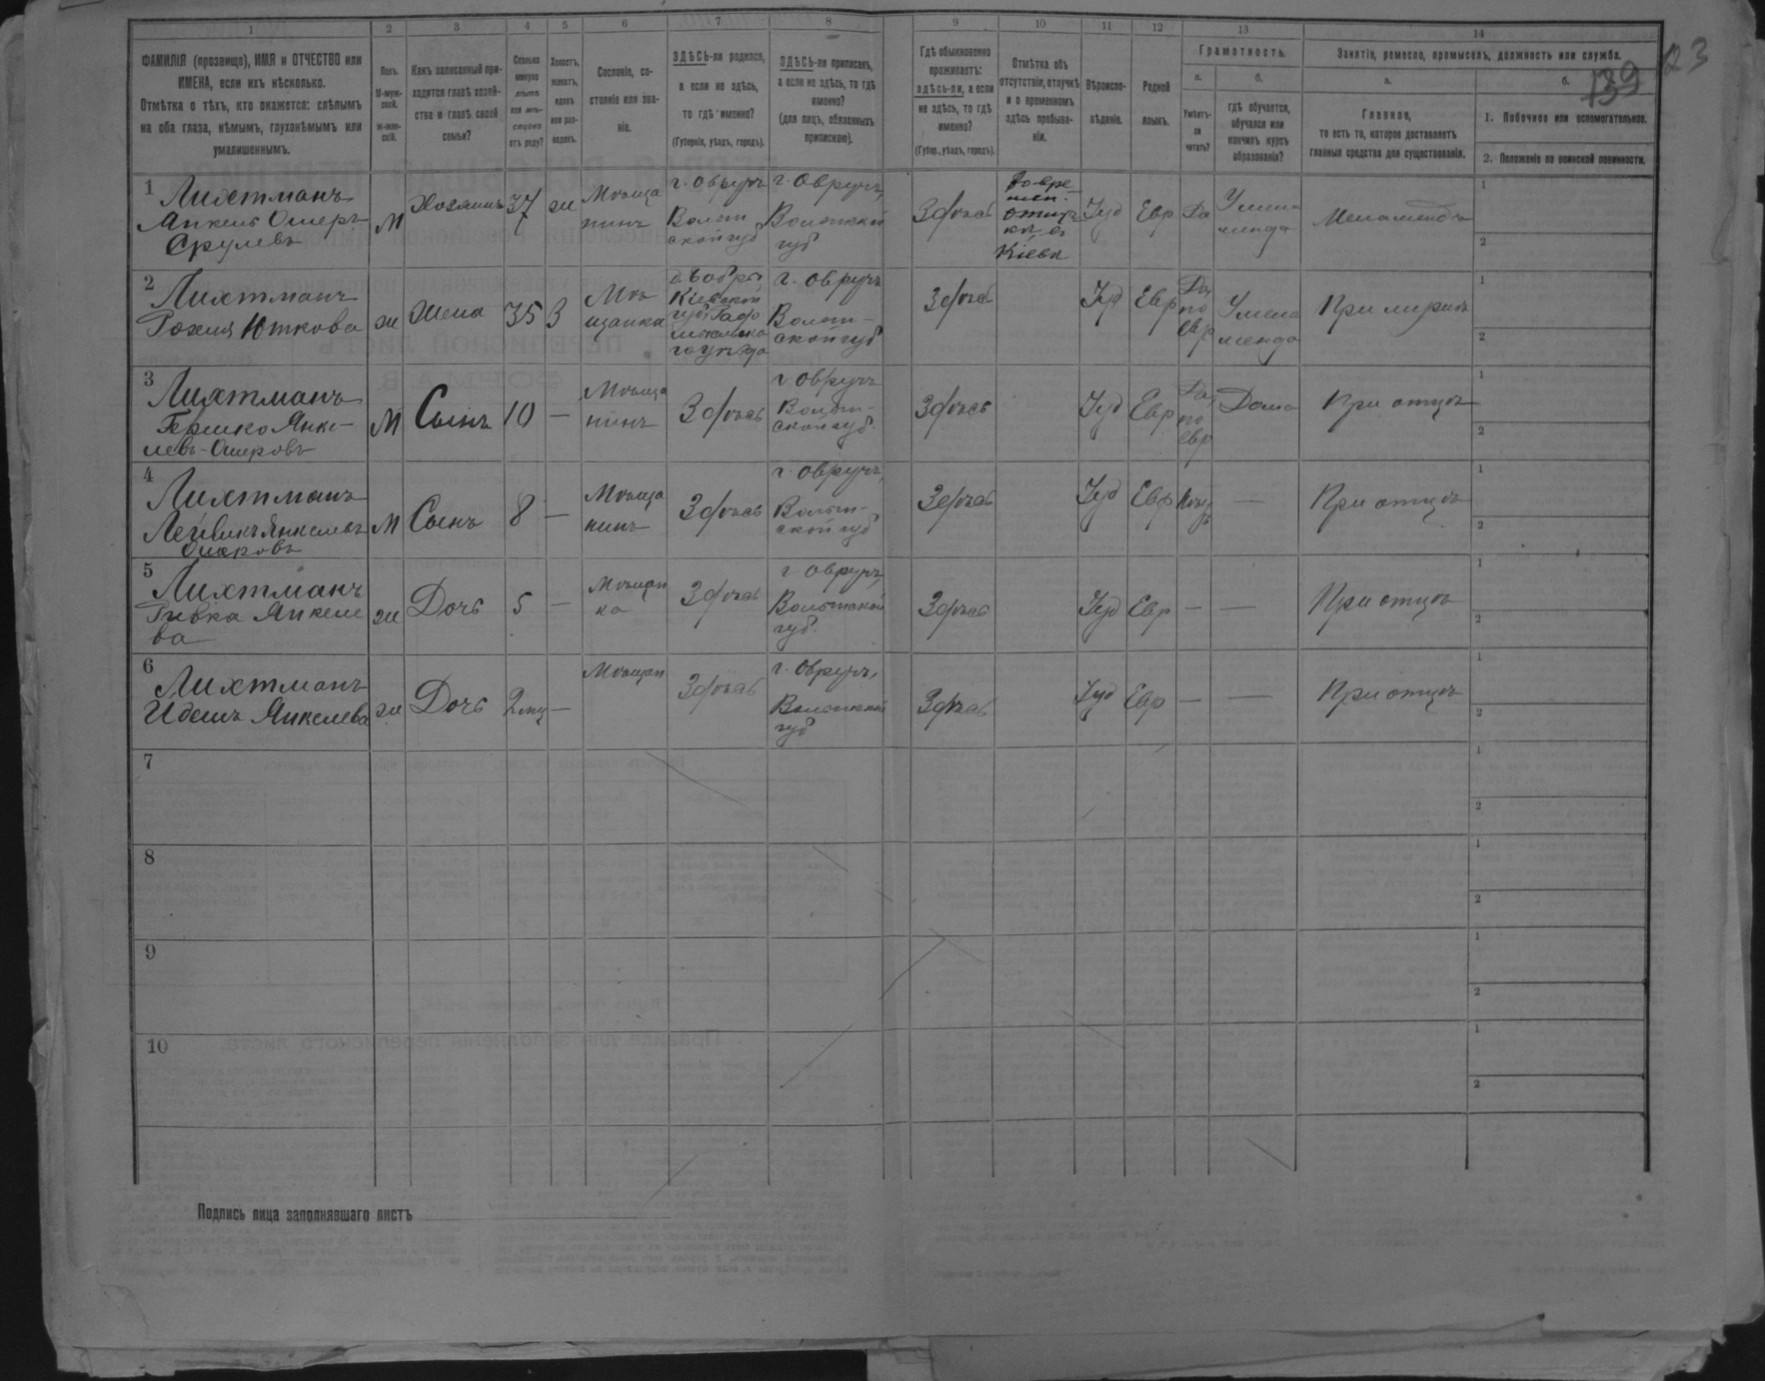 1 2 3 4 5 6 7 8 9 10 11 12 13 14
ФАМИЛІЯ (прозвище), ИМЯ и ОТЧЕСТВО или
ИМЕНА, если ихъ нѣсколько.
Отмѣтка о тѣхъ, кто окажется: слѣпымъ
на оба глаза, нѣмымъ, глухонѣмымъ или
умалишеннымъ.
Полъ.
М-муж-
ской.
Ж-жен-
скій.
Какъ записанный при-
ходится главѣ хозяй-
ства и главѣ своей
семьи?
Сколько
минуло
лѣтъ
или мѣ-
сяцевъ
отъ роду?
Холостъ,
женатъ,
вдовъ
или раз-
веденъ.
Сословіе, со-
стояніе или зва-
ніе.
ЗДѢСЬ-ли родился,
а если не здѣсь,
то гдѣ именно?
(Губернія, уѣздъ, городъ).
ЗДѢСЬ-ли приписанъ,
а если не здѣсь, то гдѣ
именно?
(для лицъ, обязанныхъ
припискою).
Гдѣ обыкновенно
проживаетъ:
здѣсь-ли, а если
не здѣсь, то гдѣ
именно?
(Губер., уѣздъ, городъ).
Отмѣтка объ
отсутствіи, отлучкѣ
и о временномъ
здѣсь пребыва-
ніи.
Вѣроиспо-
вѣданіе.
Родной
языкъ.
Грамотность.
а.
Умѣетъ-
ли
читать?
б.
гдѣ обучается,
обучался или
кончилъ курсъ
образованія?
Занятія, ремесло, промыселъ, должность или служба.
а.
Главное,
то есть то, которое доставляетъ
главныя средства для существованія.
б.
1. Побочное или вспомогательное.
2. Положеніе по воинской повинности.
139
23
1 Лихтманъ
Янкель Ошеръ
Срулевъ
М
Хозяинъ
37
ж
Мѣща
нинъ
г. Овручъ
Волын
ской губ
г. Овручъ,
Волынской
губ
Здѣсь
Кіевѣ
Іуд
Евр
Да
У мела
меда
Меламедъ
1
2
2
Лихтманъ
Рохля Юткова
ж
Жена
35
З
Мѣ
щанка
Кіевской
губ, Радо
мысльска
го уѣзда
г. Овручъ
Волын-
ской губ
Здѣсь
Іуд
Евр
Да,
по
евр
При мужѣ
1
2
3
Лихтманъ
Гершко Янке-
левъ-Ошеровъ
М
Сынъ
10
—
Мѣща
нинъ
Здѣсь
г Овручъ
Волын-
ской губ.
Здѣсь
Іуд
Евр
Да,
по
евр
Дома
При отцѣ
1
2
4
Лихтманъ
Лейвикъ Янкелев
Ошеровъ
М
Сынъ
8
—
Мѣща
нинъ
Здѣсь
г. Овручъ,
Волын-
ской губ
Здѣсь
Іуд
Евр
—
При отцѣ
1
2
5
Лихтманъ
Ривка Янкеле
ва
ж
Дочь
5
—
Мѣщан
ка
Здѣсь
г Овручъ,
Волынской
губ.
Здѣсь
Іуд
Евр
—
—
При отцѣ
1
2
6
Лихтманъ
Идесъ Янкелева
ж
Дочь
2 мц
—
Мѣщан
Здѣсь
г. Овручъ,
Волынской
губ
Здѣсь
Іуд
Евр
—
—
При отцѣ
1
2
7
1
2
8
1
2
9
1
2
10
1
2
Подпись лица заполнявшаго листъ